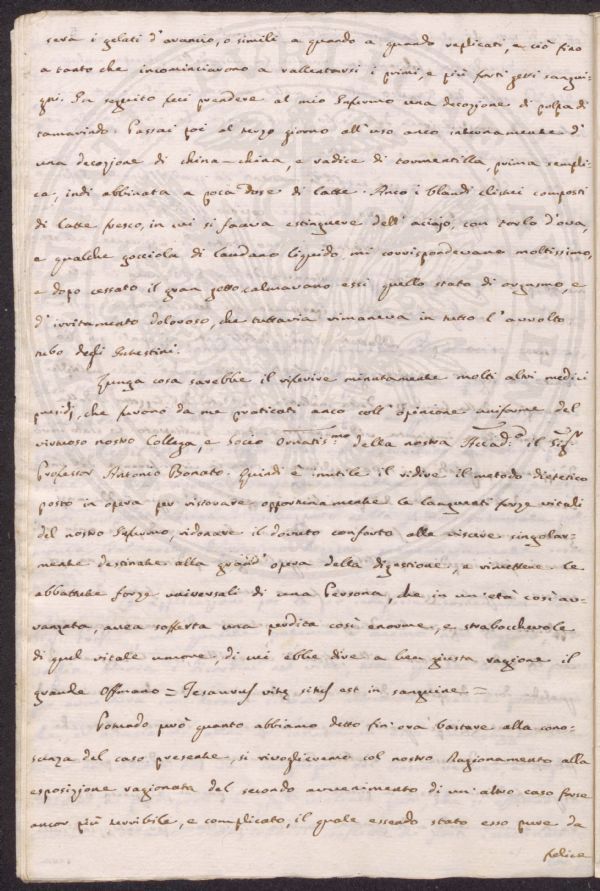 sera i gelati d'arancio, o simili a quando a quando replicati, e ciò fino
a tanto che incominciarono a rallentarsi i primi, e più forti getti sangui-
gni. In seguito feci prendere al mio Infermo una decozione di polpa di
tamarindo. Passai poi al terzo giorno all'uso anco internamente d'
una decozione di china-china, e radice di tormentilla, prima sempli-
ce, indi abbinata a poca dose di latte. Anco i blandi clisteri composti
di latte fresco, in cui si faceva estinguere dell'acciajo, con torlo d'ova,
e qualche gocciola di laudano liquido, mi corrispondevano moltissimo,
e dopo cessato il gran getto, calmavano essi quello stato di orgasmo, e
d'irritamento doloroso, che tuttavia rimaneva in tutto l'avvolto
tubo degl'Intestini.
Lunga cosa sarebbe il riferire minutamente molti altri medici
presidj, che furono da me praticati anco coll'opinione uniforme del
virtuoso nostro Collega, e Socio Ornatis.mo della nostra Accad.a il Sig.r
Professor Antonio Bonato. Quindi è inutile il ridire il metodo dietetico
posto in opera per ristorare opportunamente le languenti forze vitali
del nostro Infermo, ridonare il dovuto conforto alle viscere singolar-
mente destinate alla grand'opera della digestione, e rimettere le
abbattute forze universali di una Persona, che in un'età così av-
vanzata, avea sofferta una perdita così enorme, e strabocchevole
di quel vitale umore, di cui ebbe dire a ben giusta ragione il
grande Offmano = Tesaurus vitę situs est in sanguine =
Potendo però quanto abbiamo detto fin'ora bastare alla cono-
scenza del caso presente, si rivoglieremo col nostro Ragionamento alla
esposizione ragionata del secondo avvenimento di un'altro caso forse
ancor più terribile, e complicato, il quale essendo stato esso pure da
felice